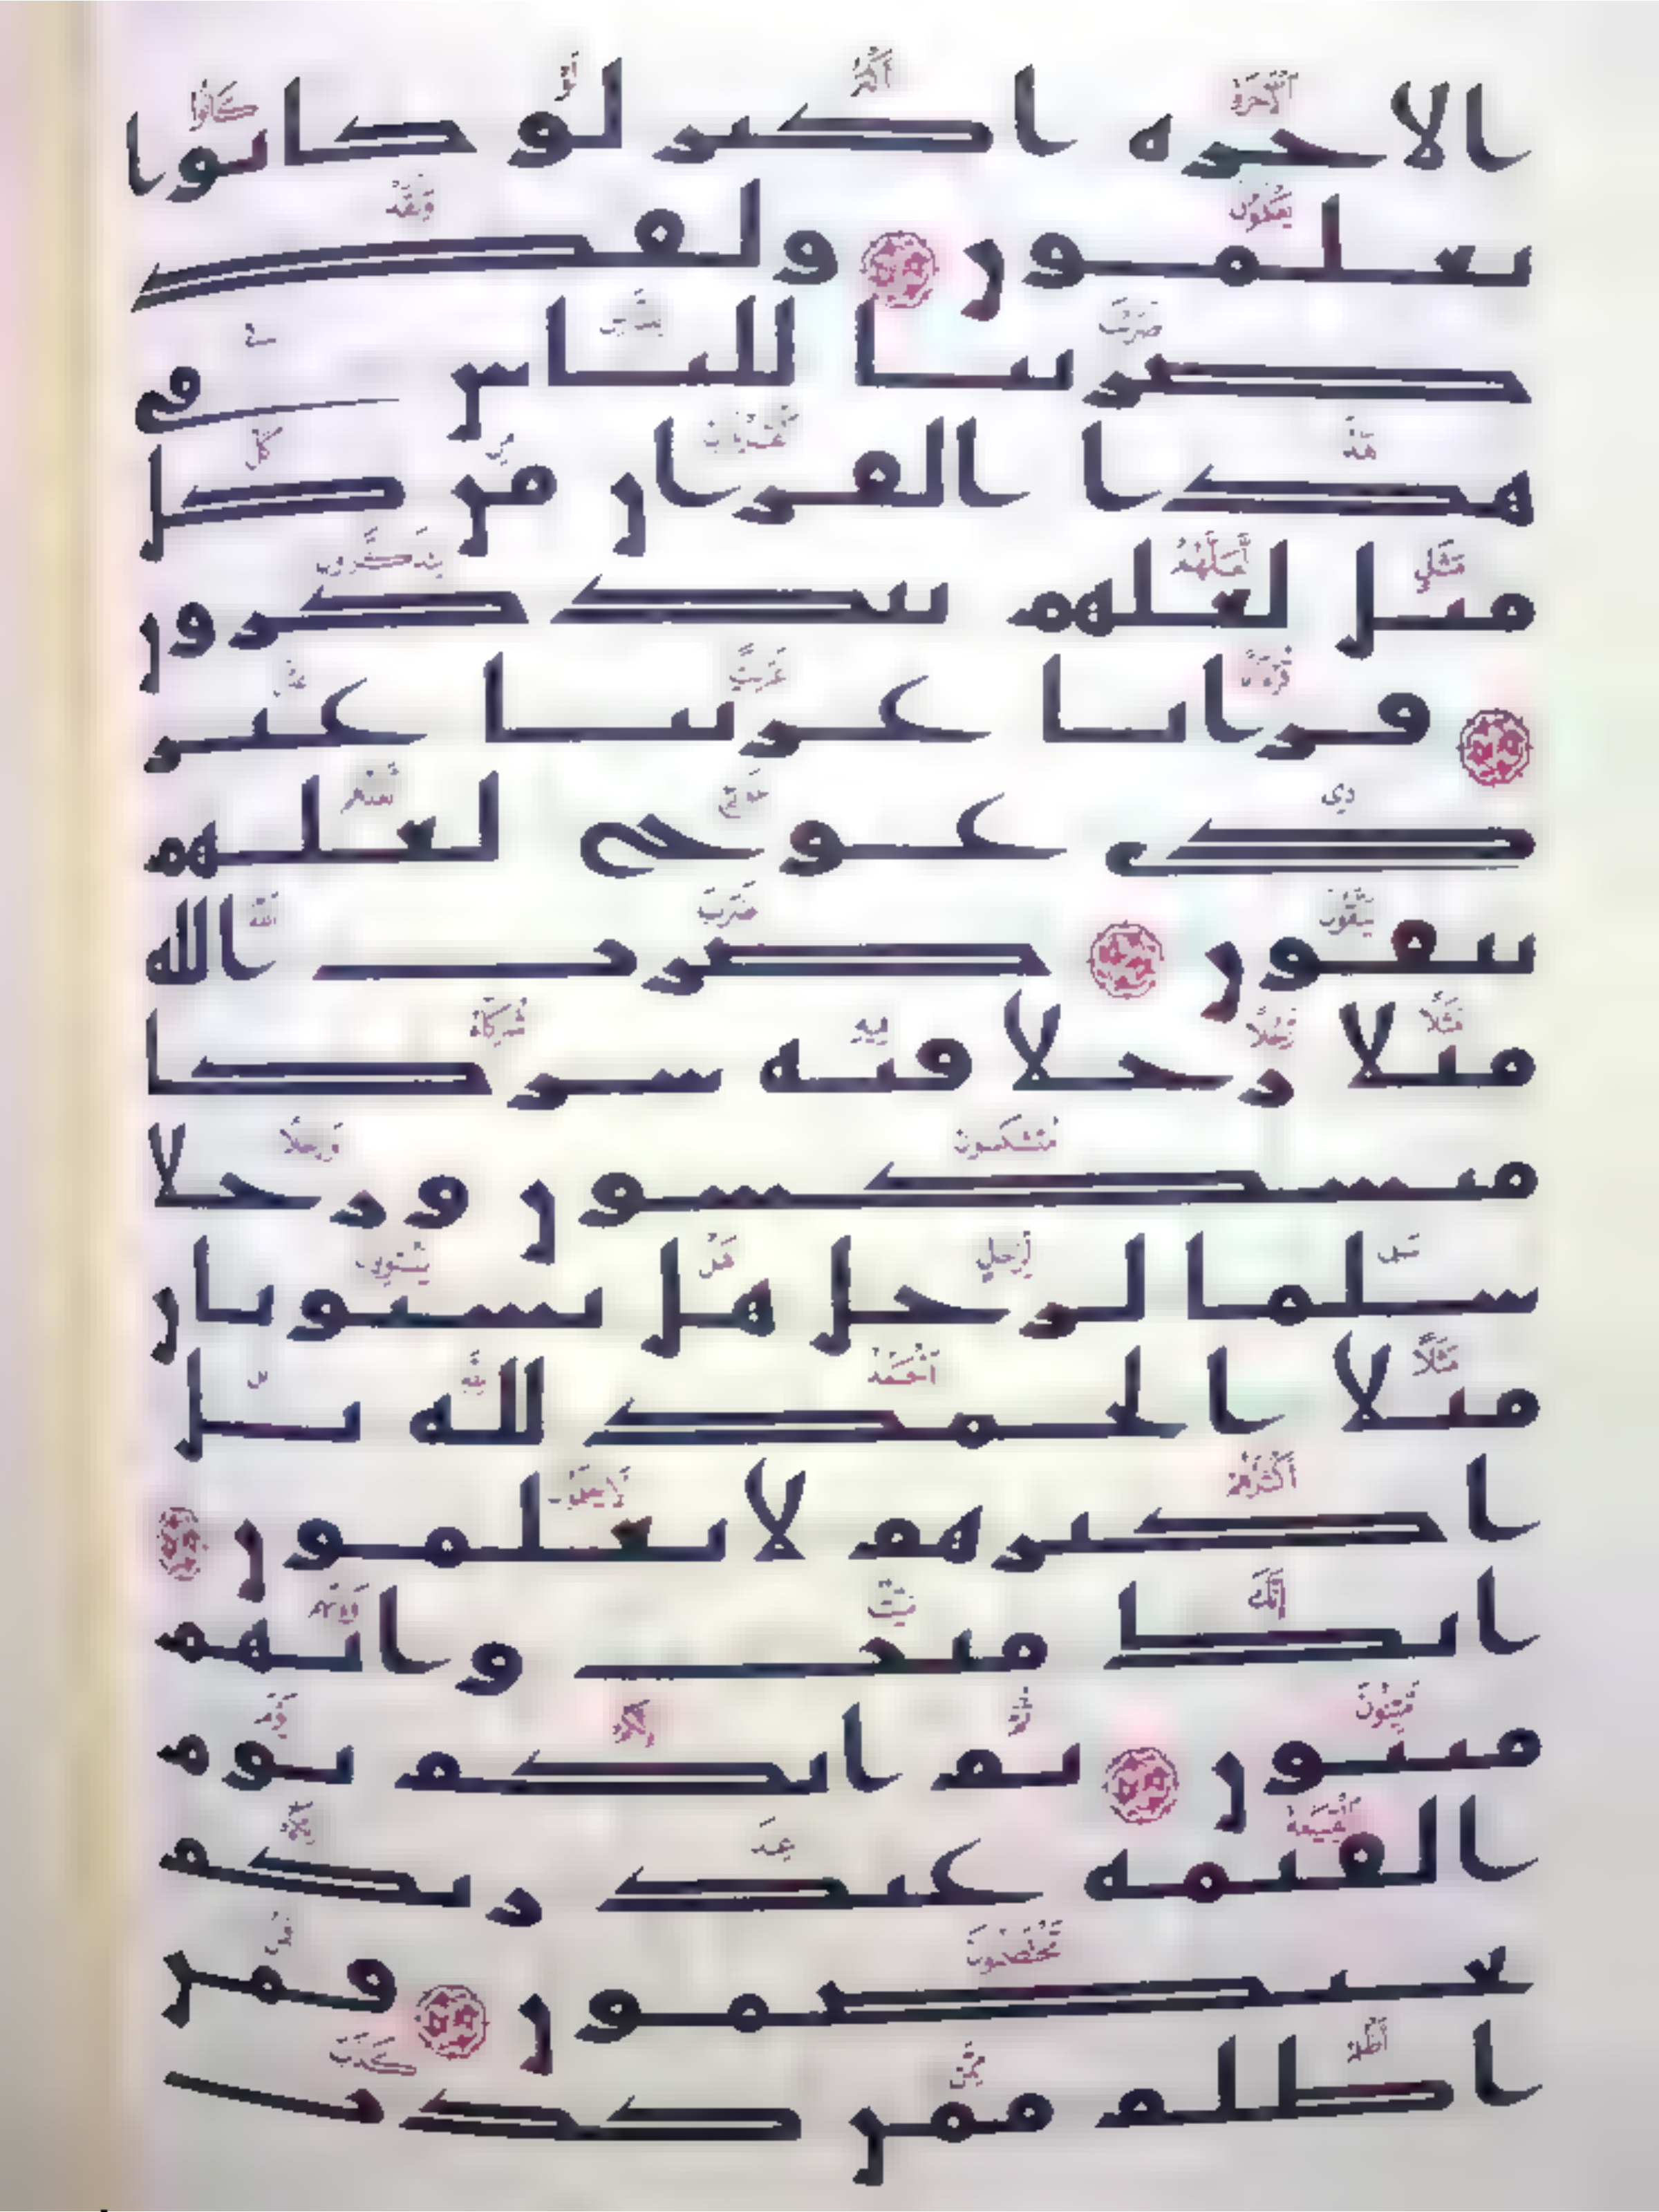 الاخره اكبر لو كانوا
يعلمون ولقد
ضربنا للناس في
هذا القران من كل
مثل لعلهم يتذكرون
قرانا عربيا غير
ذي عوج لعلهم
يتقون ضرب الله
مثلا رجلا فيه شركا
متشكسون ورجلا
سلما لرجل هل يستويان
مثلا الحمد لله بل
اكثرهم لا يعلمون
انك ميت وانهم
ميتون ثم انكم يوم
القيمه عند ربكم
تختصمون فمن
اظلم ممن كذب